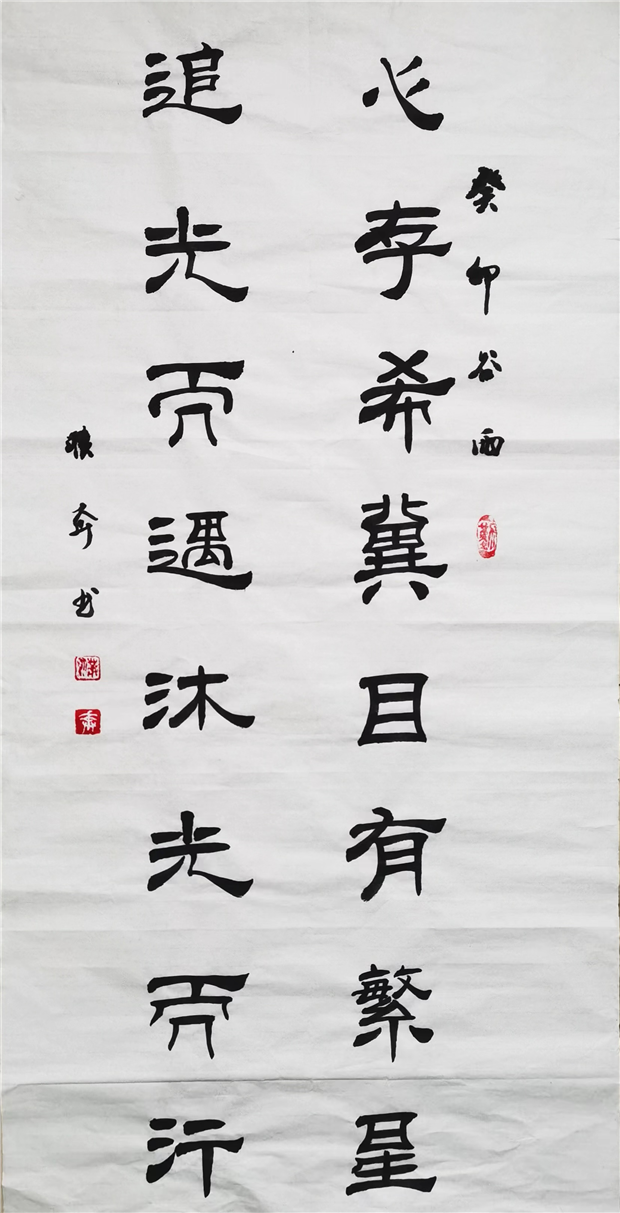 癸卯谷雨
心存希冀目有繁星
追光而遇沐光而行
书